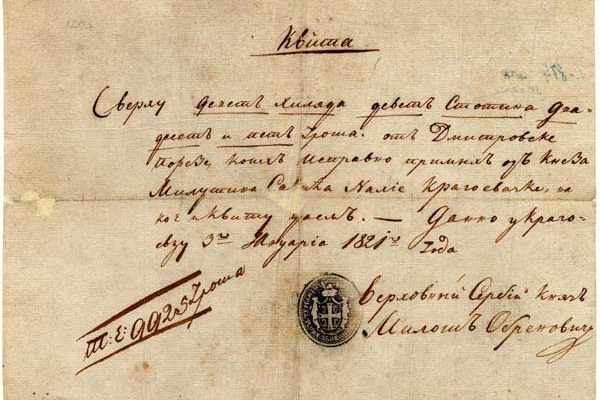 Квита
Сверху деветъ Хиляда деветъ Стотина два-
десетъ и петъ Гроша. отъ Дмитровске
Порезе, кои исправно примилъ одъ Кнеза
Милутина Савића Наліе Крагоевачке, на
кое и квиту даемъ. — Данно у Краго-
евцу 3го Януаріа 1821го
года
Верховный Сербій Князъ
Милошъ Обреновичъ
т: Е: 9925 Гроша